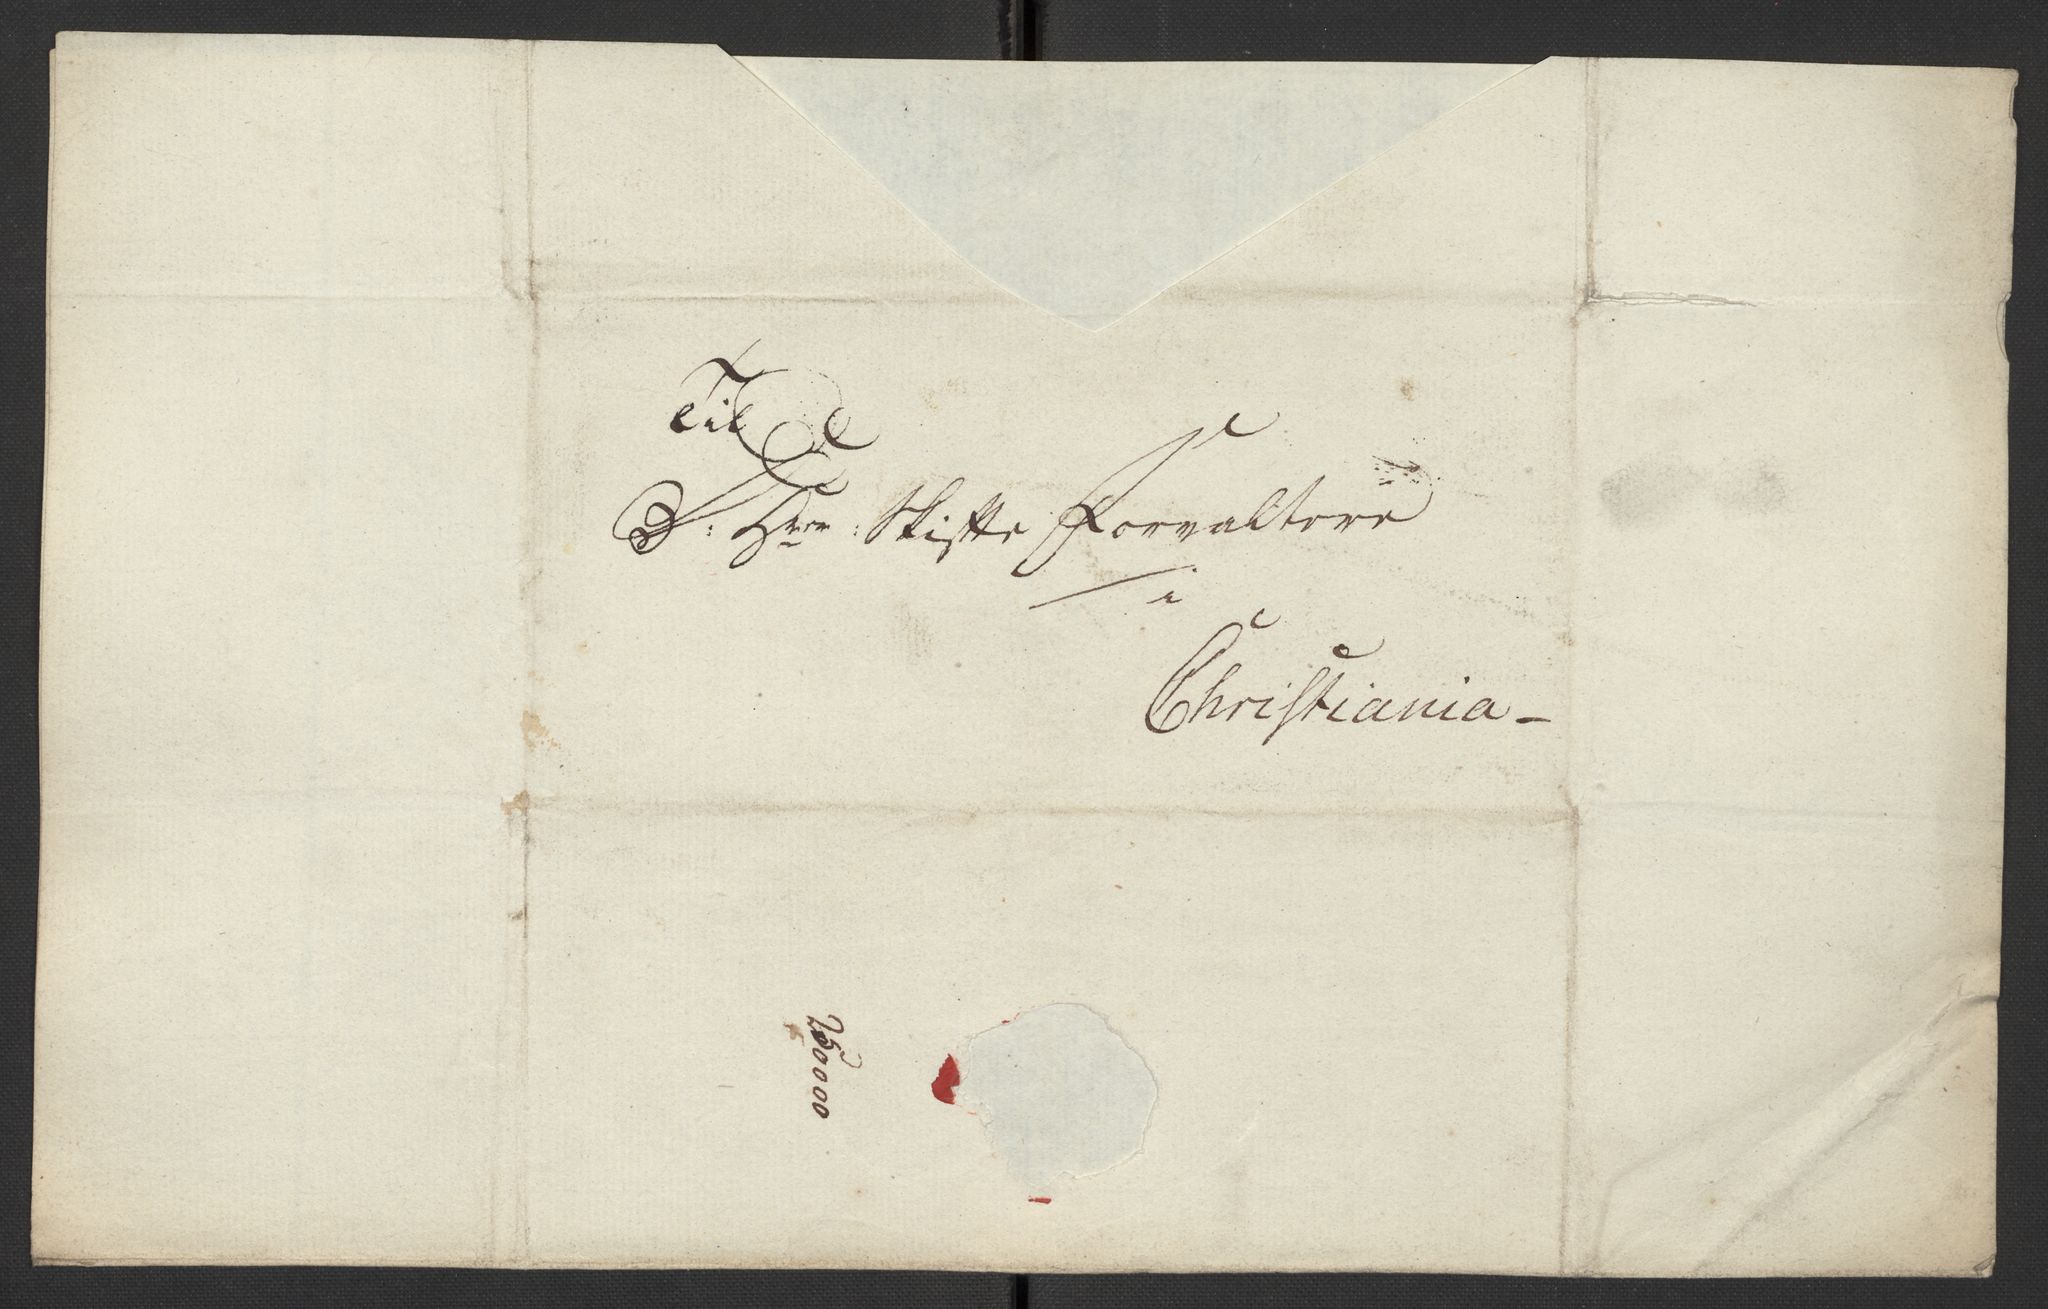 Til
D: Hrr: Skifte Forvaltere
i
Christiania -
250000